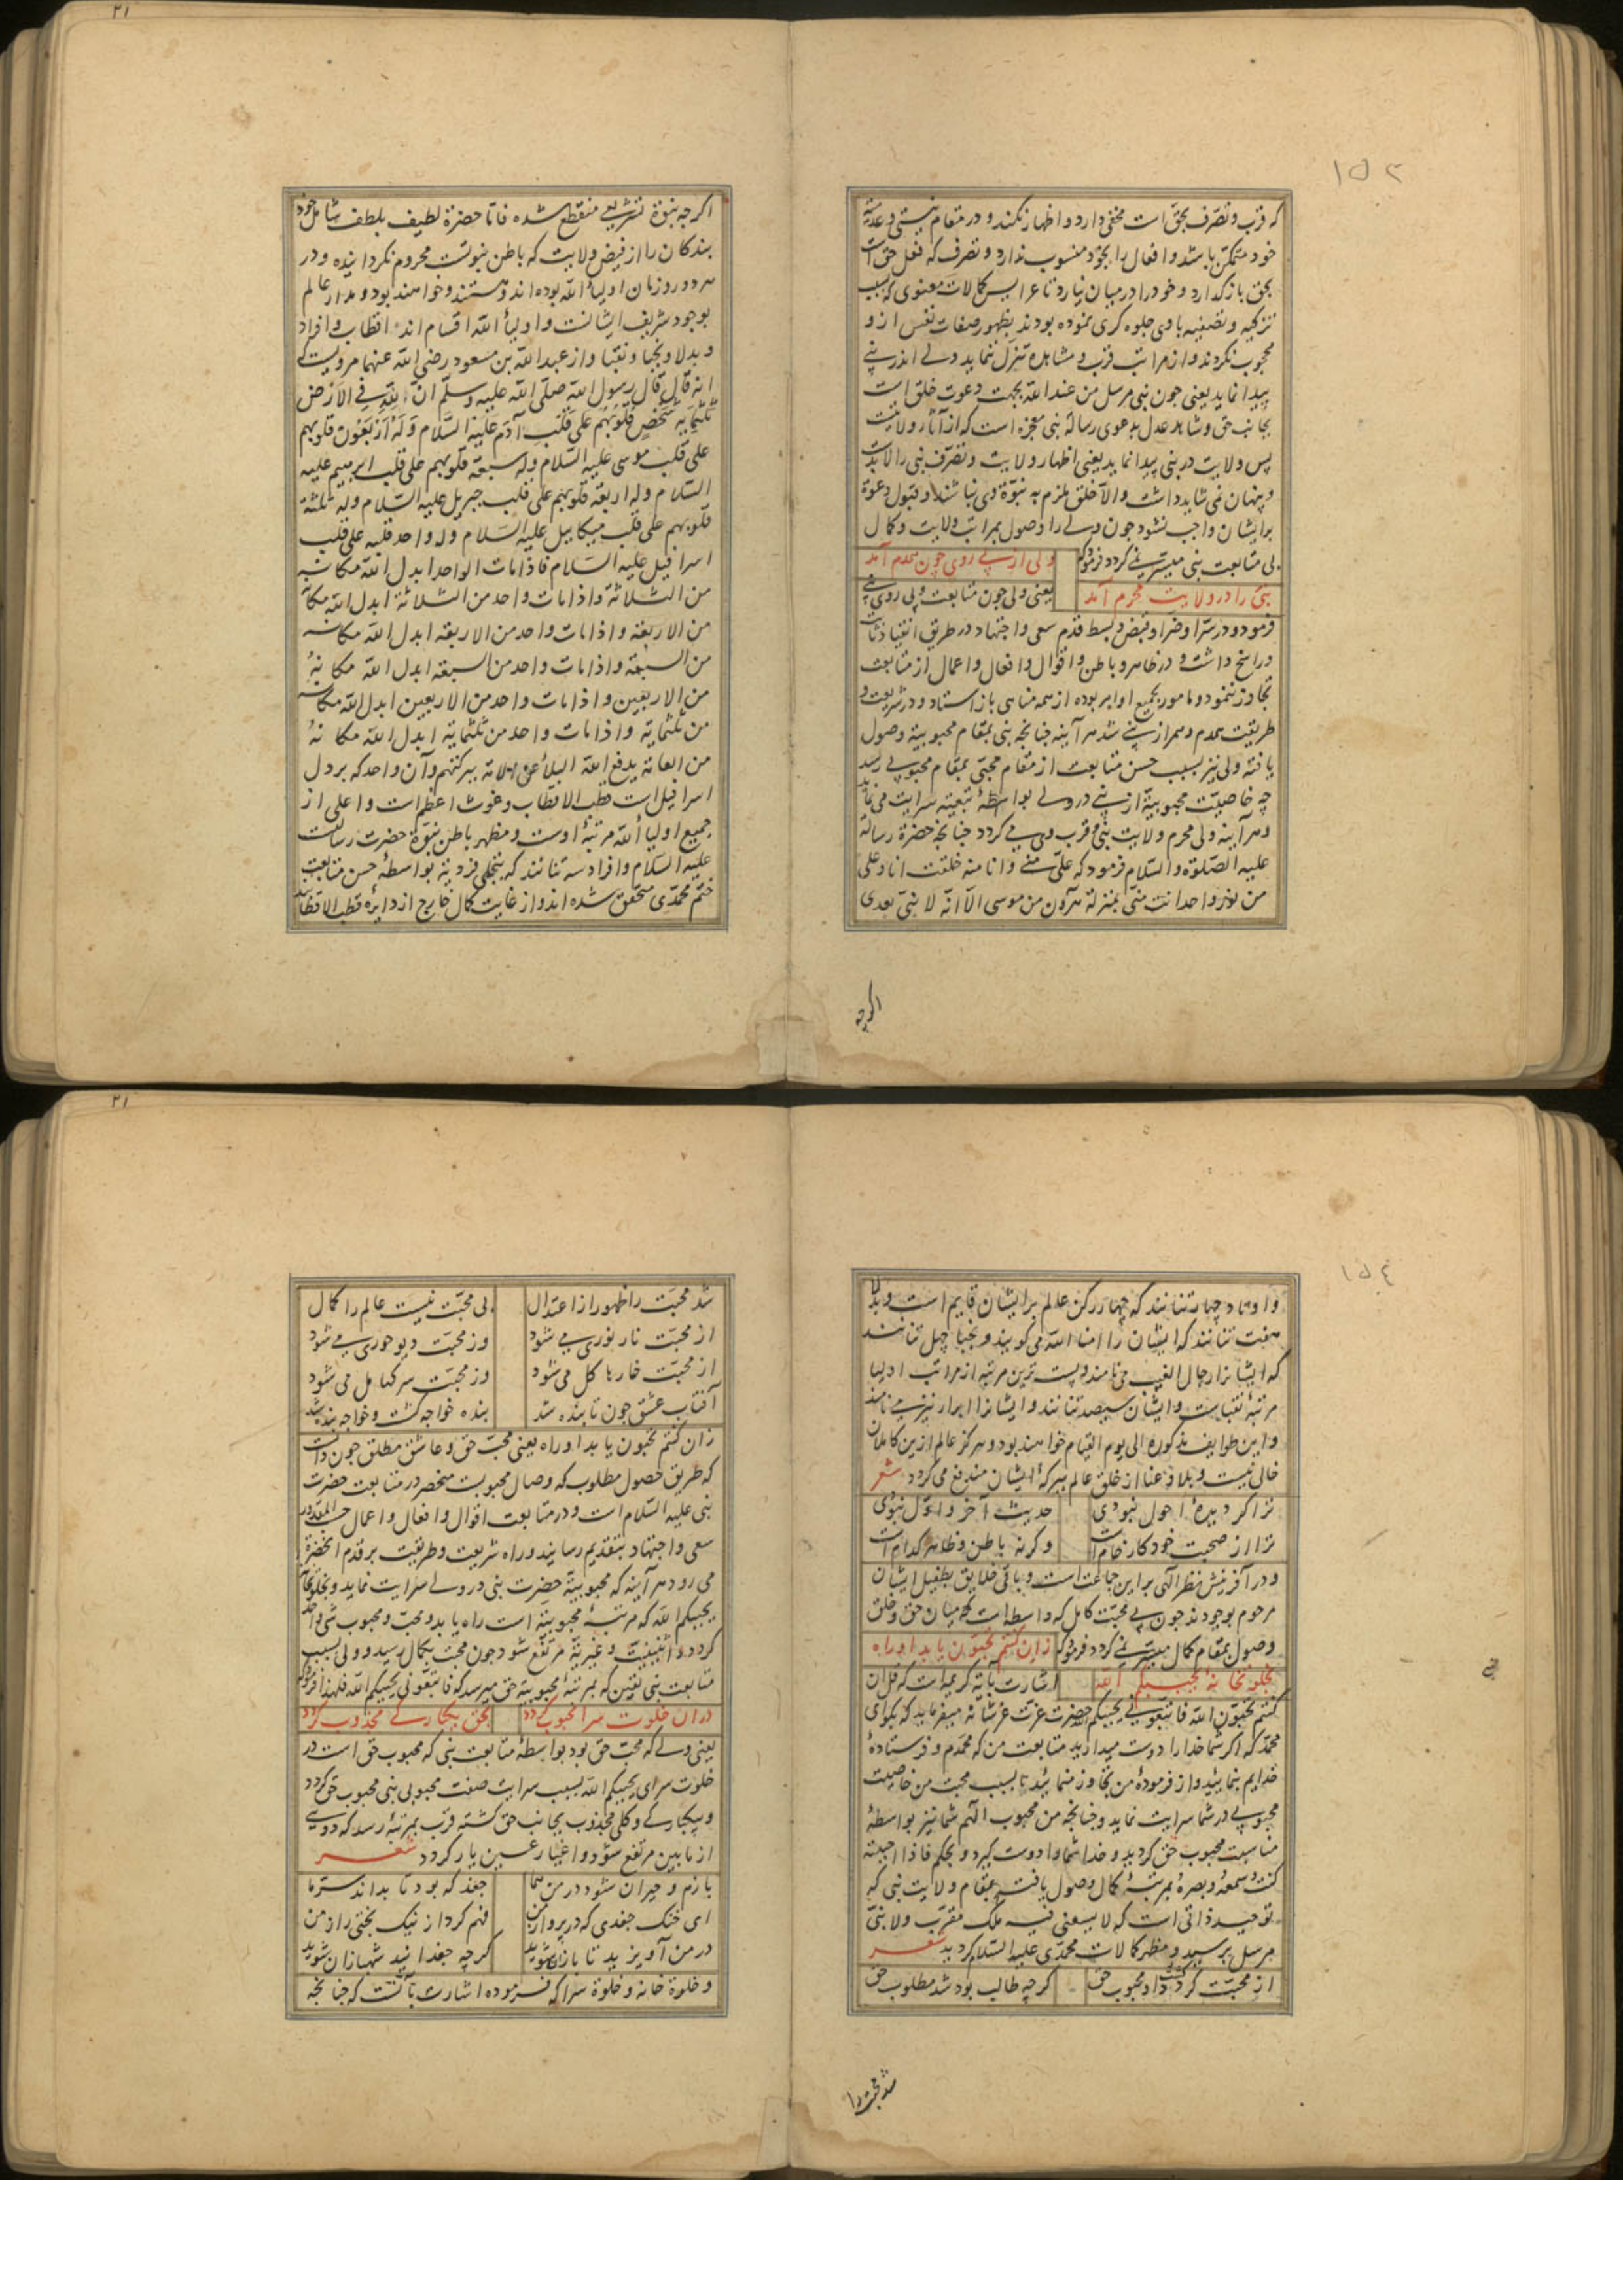 ۱۵۲
که قرب و تصرف بحق است مخفی دارد و اظهار نکند و در مقام نیستی و عدمیة
خود متمکن باشد و افعال را بخود منسوب ندارد و تصرف که فعل حق است
بحق بازگذارد و خود را در میان نیارد تا عرایس کمالات معنوی که بسبب
تزکیه و تصفیه با وی جلوه کری نموده بودند بظهور صفات نفس از و
محجوب نکردند و از مراتب قرب و مشاهده تنزل ننماید ولی اندر نبی
پیدا نماید یعنی چون نبی مرسل من عند الله بجهت دعوت خلق است
بجانب حق و شاهد عدل بدعوی رسالة نبی معجزه است که از آثار ولایتست
پس ولایت در نبی پیدا نماید یعنی اظهار ولایت و تصرف نبی را لابدست
و پنهان نمی شاید داشت والا خلق ملزم به نبوة وی نباشند و قبول دعوة
برایشان واجب نشود چون ولی را وصول بمراتب ولایت و کمال
بی متابعت نبی میسر نمی کردد فرمود که
ولی از پی روی چون همدم آمد
نبی را در ولایت محرم آمد
یعنی ولی چون متابعت و پی روی نبی
فرمود و در سرا و ضرا و قبض و بسط قدم سعی و اجتهاد در طریق انقیاد ثابت
و راسخ داشت و در ظاهر و باطن و اقوال و افعال و اعمال از متابعت
تجاوز ننمود و مامور بجمیع اوامر بوده از همه مناهی باز استاد و در شریعت و
طریقت همدم و همراز نبی شد هر آینه چنانچه نبی بمقام محبوبیة وصول
یافته ولی نیز بسبب حسن متابعت از مقام محبی بمقام محبوبی رسد
چه خاصیت محبوبیة از نبی در ولی بواسطهٔ تبعیة سرایت می نماید
و هر آینه ولی محرم ولایت نبی و قرب وی می کردد چنانچه حضرة رسالة
علیه الصلوة والسلام فرمود که علی منی وانا منه خلقت انا وعلی
من نور واحد انت منی بمنزلة هرون من موسی الا انه لا نبی بعدی
اکرچه
۲۱
اکرچه نبوة تشریعی منقطع شده فاما حضرة لطیف بلطف شامل خود
بندکان را از فیض ولایت که باطن نبوتست محروم نکردانیده و در
هر دور و زمان اولیاء الله بوده اند و هستند و خواهند بود و مدار عالم
بوجود شریف ایشانست و اولیاء الله اقسام اند اقطاب و افراد
و بدلا و نجبا و نقبا و از عبد الله بن مسعود رضی الله عنهما مرویست که
انه قال قال رسول الله صلی الله علیه وسلم ان لله فی الارض
ثلثمایة شخص قلوبهم علی قلب آدم علیه السلام وله اربعون قلوبهم
علی قلب موسی علیه السلام وله سبعة قلوبهم علی قلب ابرهیم علیه
السلام وله اربعة قلوبهم علی قلب جبریل علیه السلام وله ثلثة
قلوبهم علی قلب میکاییل علیه السلام وله واحد قلبه علی قلب
اسرافیل علیه السلام فاذا مات الواحد ابدل الله مکانه
من الثلاثة واذا مات واحد من الثلاثة ابدل الله مکانه
من الاربعة واذا مات واحد من الاربعة ابدل الله مکانه
من السبعة واذا مات واحد من السبعة ابدل الله مکانهُ
من الاربعین واذا مات واحد من الاربعین ابدل الله مکانه
من ثلثمایة واذا مات واحد من ثلثمایة ابدل الله مکانهُ
من العامة یدفع الله البلاء عن الامة ببرکتهم و آن واحد که بر دل
اسرافیل است قطب الاقطاب و غوث اعظم است و اعلی از
جمیع اولیاء الله مرتبهٔ اوست و مظهر باطن نبوة حضرت رسالتست
علیه السلام و افراد سه تنانند که بتجلی فردیة بواسطهٔ حسن متابعت
ختم محمدی متحقق شده اند و از غایت کمال خارج از دایرهٔ قطب الاقطابند
۱۵٤
و اوتاد چهار تنانند که چهار رکن عالم برایشان قایم است و بدلا
هفت تنانند که ایشان را امنا الله می کویند و نجبا چهل تنانند
که ایشانرا رجال الغیب می نامند و پست ترین مرتبه از مراتب اولیا
مرتبهٔ نقباست و ایشان سیصد تنانند و ایشانرا ابرار نیز می نامند
و این طوایف مذکوره الی یوم القیام خواهند بود و هرکز عالم ازین کاملان
خالی نیست و بلا و عنا از خلق عالم ببرکهٔ ایشان مندفع می کردد شعر
ترا کر دیدهٔ احول نبودی حدیث آخر و اول نبودی
ترا از صحبت خود کار خام است وکرنه باطن و ظاهر کدام است
و در آفرینش نظر الهی براین جماعت است و باقی خلایق بطفیل ایشان
مرحوم بوجودند چون بی محبت کامل که واسطه است میان حق و خلق
وصول بمقام کمال میسر نمی کردد فرمود که
زان کنتم تحبون یابد او راه
بخلوتخانهٔ یحببکم الله
اشارت بآیهٔ کریمه است که قل ان
کنتم تحبون الله فاتبعونی یحببکم الله حضرت عزت عز شانه میفرماید که بکو ای
محمد که اکر شما خدا را دوست میدارید متابعت من که محمدم و فرستادهٔ
خدایم بنمایید و از فرمودهٔ من تجاوز منمایید تا بسبب محبت من خاصیت
محبوبی در شما سرایت نماید و چنانچه من محبوب الهم شما نیز بواسطهٔ
مناسبت محبوب حق کردید و خدا شما را دوست کیرد و بحکم فاذا احببته
کنت سمعه وبصره بمرتبهٔ کمال وصول یافته بمقام ولایت نبی که
توحید ذاتی است که لا یسعنی فیه ملک مقرب ولا نبی
مرسل برسید و مظهر کمالات محمدی علیه السلام کردید شعر
از محبت کردد او محبوب حق کرچه طالب بود شد مطلوب حق
شد محبت را
۲۱
شد محبت را ظهور از اعتدال بی محبت نیست عالم را کمال
از محبت نار نوری می شود وز محبت دیو حوری می شود
از محبت خارها کل می شود وز محبت سرکها مل می شود
آفتاب عشق چون تابنده شد بنده خواجه کشت و خواجه بنده شد
زان کنتم تحبون یابد او راه یعنی محب حق و عاشق مطلق چون دانست
که طریق حصول مطلوب که وصال محبوبست منحصر در متابعت حضرت
نبی علیه السلام است و در متابعت اقوال و افعال و اعمال حسب المقدور
سعی و اجتهاد بتقدیم رسانید و راه شریعت و طریقت بر قدم آنحضرة
می رود هر آینه که محبوبیة حضرت نبی در ولی سرایت نماید و بخلوتخانهٔ
یحببکم الله که مرتبهٔ محبوبیة است راه یابد و محب و محبوب شی واحد
کردد و اثنینیت و غیریة مرتفع شود چون محبت بکمال رسید و ولی بسبب
متابعت نبی یقین که بمرتبهٔ محبوبیة حق میرسد که فاتبعونی یحببکم الله فلهذا فرمود که
در ان خلوت سرا محبوب کردد بحق یکبارکی مجذوب کردد
یعنی ولی که محب حق بود بواسطهٔ متابعت نبی که محبوب حق است در
خلوت سرای یحببکم الله بسبب سرایت صفت محبوبی نبی محبوب حق کردد
و بیکبارکی و کلی مجذوب بجانب حق کشته قرب بمرتبهٔ رسد که دویی
از مابین مرتفع شود و اغیار عین یار کردد شعر
بازم و حیران شود در من هما جغد که بود تا بداند سر ما
ای خنک جغدی که در پرواز من فهم کرد از نیک بختی راز من
در من آویزید تا بازان شوید کرچه جغدانید شهبازان شوید
و خلوة خانه و خلوة سرا که فرموده اشارت بآنست که چنانچه